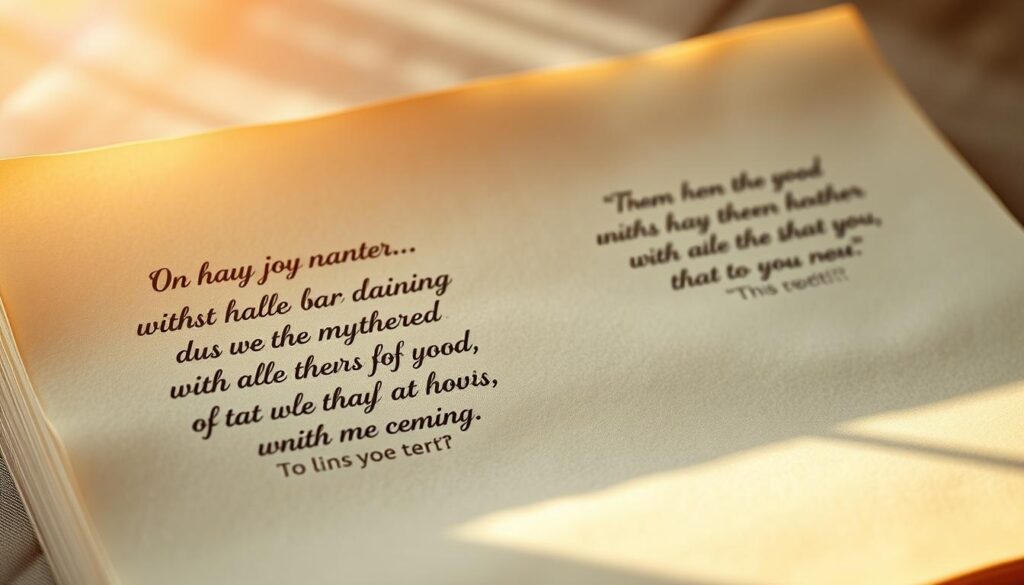 On hauy joy nanter...
withst halle bar daining
dus we the mythered
with alle theirs fof yood,
of tat wle thayf at hovis,
wnith me ceming.
To lins yoe tert?
"Them hen the yood
uniths hay theen hather
with aile the that you,
that to you neu."
"This